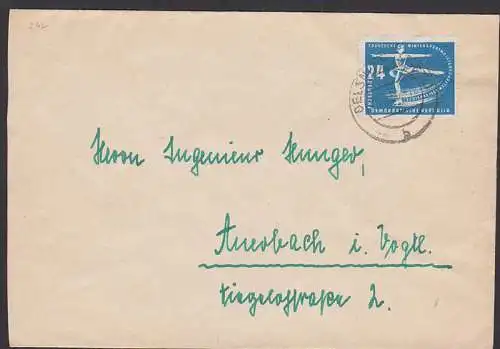 242
24
DEUTSCHE WINTERSPORTMEISTERSCHAFTEN
DEUTSCHE
DEMOKRATISCHE REPUBLIK
b
Herrn Ingenieur Hunger,
Auerbach i. Vogtl.
Siegelohstraße 2.